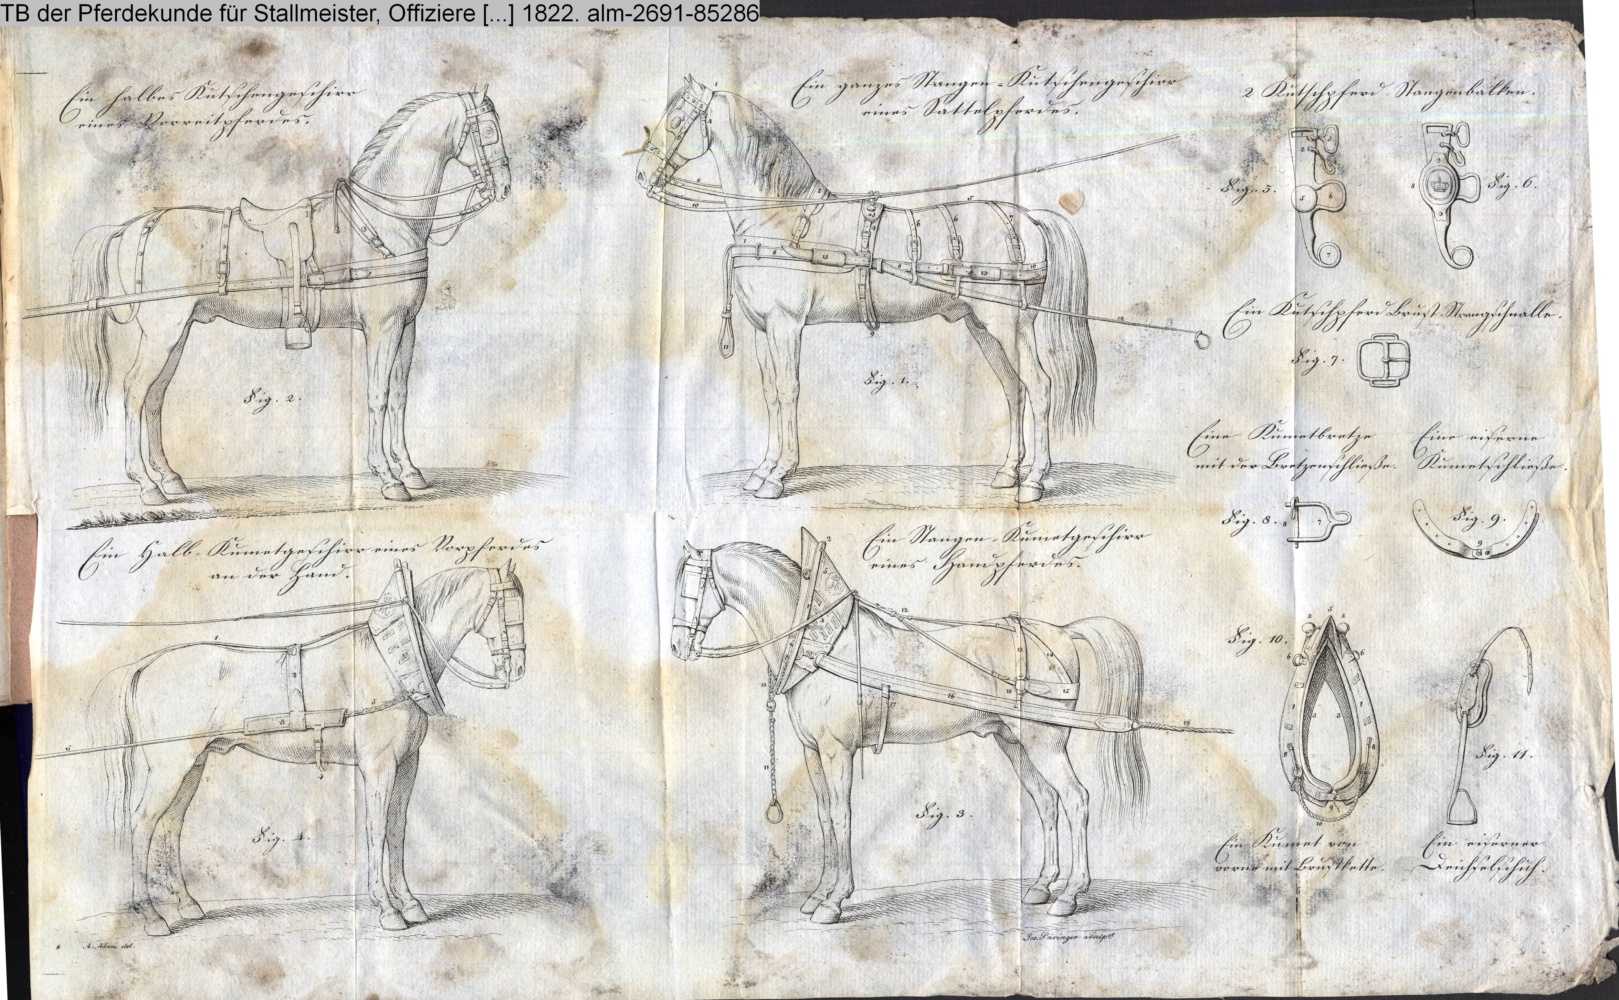 TB der Pferdekunde für Stallmeister, Offiziere [...] 1822. alm-2691-85286
Ein halbes Kutschengeschirr
eines Vorreitpferdes.
Fig. 2.
Ein ganzes Stangen-Kutschengeschirr
eines Sattelpferdes.
Fig. 1.
2 Kutschpferd Stangenbalken.
Fig. 5.
Fig. 6.
Ein Kutschpferd Brust-Strangschnalle.
Fig. 7.
Eine Kumetbretze
mit der Bretzenschließe.
Fig. 8.
Eine eiserne
Kumetschließe.
Fig. 9.
Ein Halb-Kumetgeschirr eines Vorpferdes
an der Hand.
Fig. 4.
A. Adam del.
Ein Stangen-Kumetgeschirr
eines Handpferdes.
Fig. 3.
Jos. Päringer sculps.
Fig. 10.
Ein Kumet von
vorne mit Brustkette.
Fig. 11.
Ein eiserner
Deichselschuh.